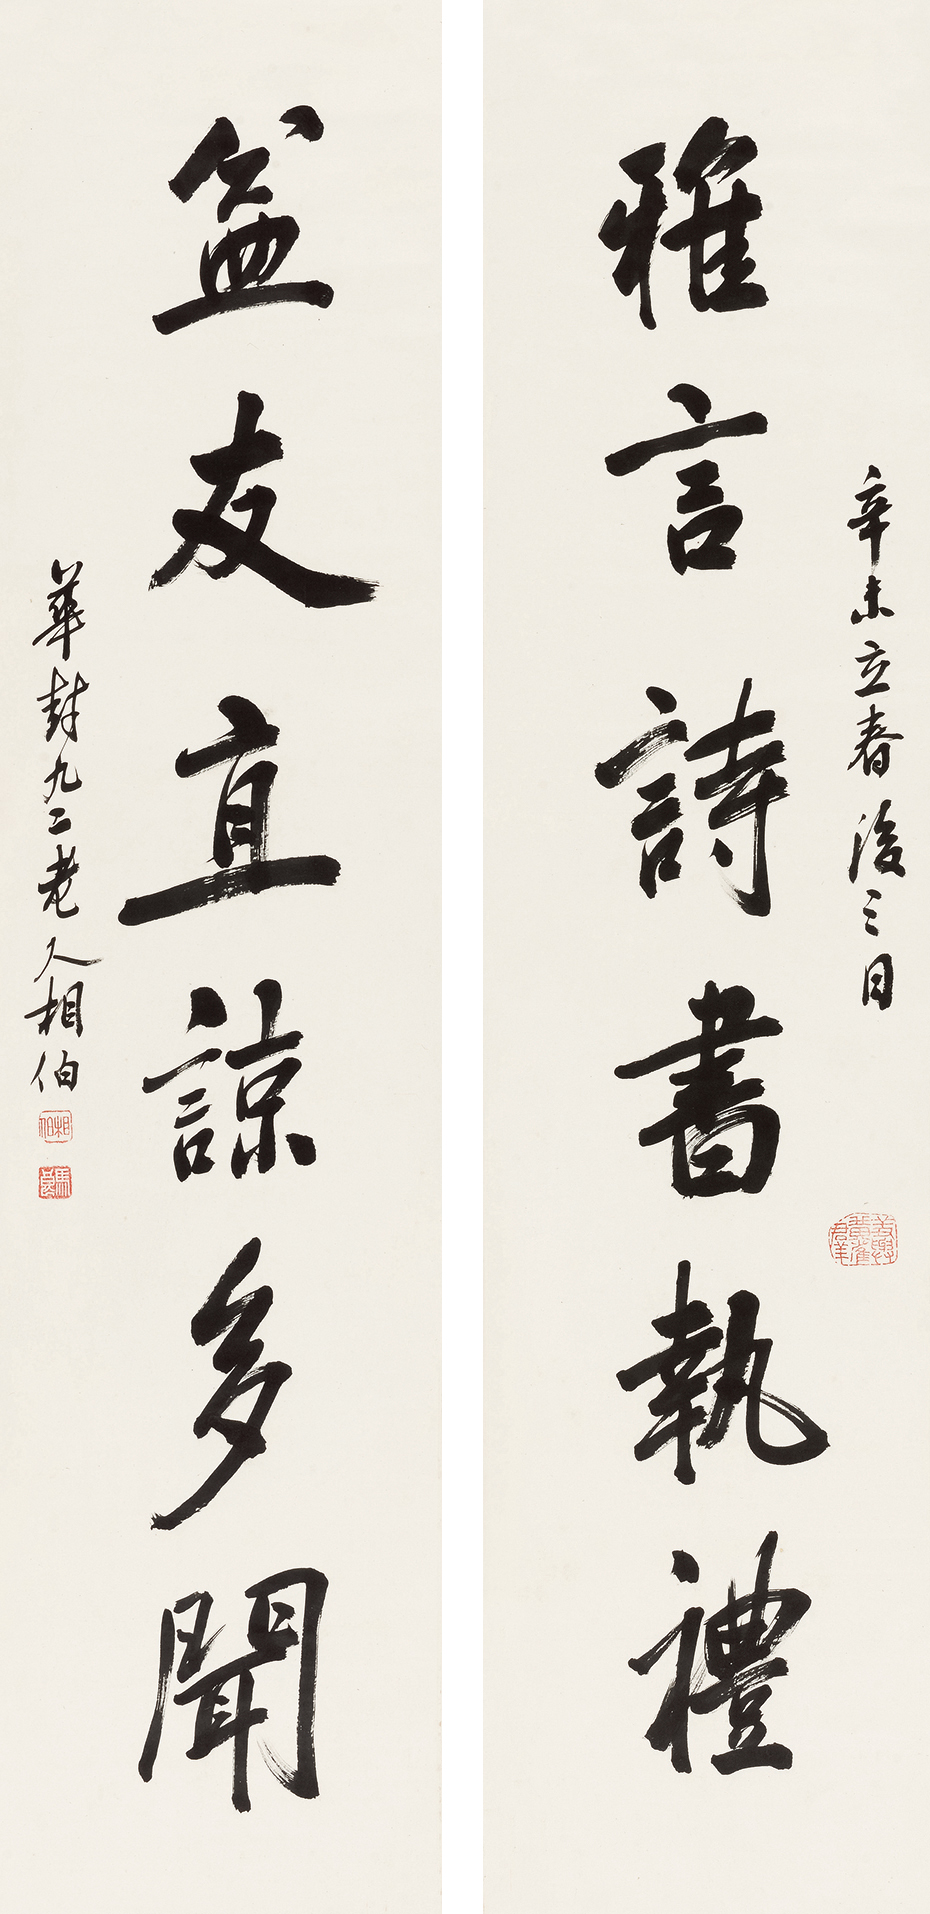 辛未立春後三日
雅言詩書執禮
益友直諒多聞
華封九二老人相伯
相伯
馬良